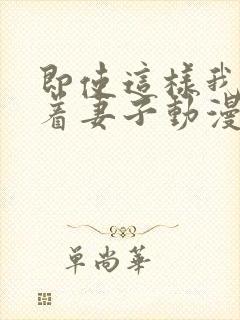 即使這樣我
着妻子動漫
單尚華